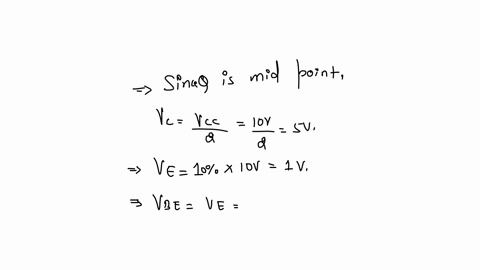 ⇒ SinaQ is mid point,
Vc = Vcc/2 = 10V/2 = 5V.
⇒ VE = 10% × 10V = 1V.
⇒ VBE = VE =